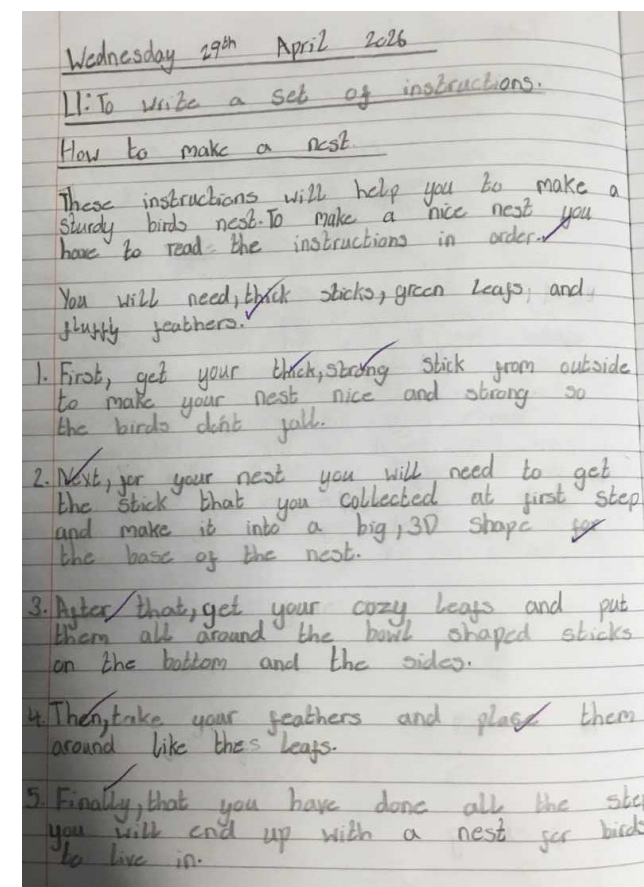 Wednesday 29th April 2026
LI: To write a set of instructions.
How to make a nest
These instructions will help you to make a
sturdy birds nest. To make a nice nest you
have to read the instructions in order.
You will need, thick sticks, green leafs, and
fluffy feathers.
1. First, get your thick, strong stick from outside
to make your nest nice and strong so
the birds dont fall.
2. Next, for your nest you will need to get
the stick that you collected at first step
and make it into a big, 3D shape for
the base of the nest.
3. After that, get your cozy leafs and put
them all around the bowl shaped sticks
on the bottom and the sides.
4. Then, take your feathers and place them
around like thes leafs.
5. Finally, that you have done all the ste
you will end up with a nest for birds
to live in.